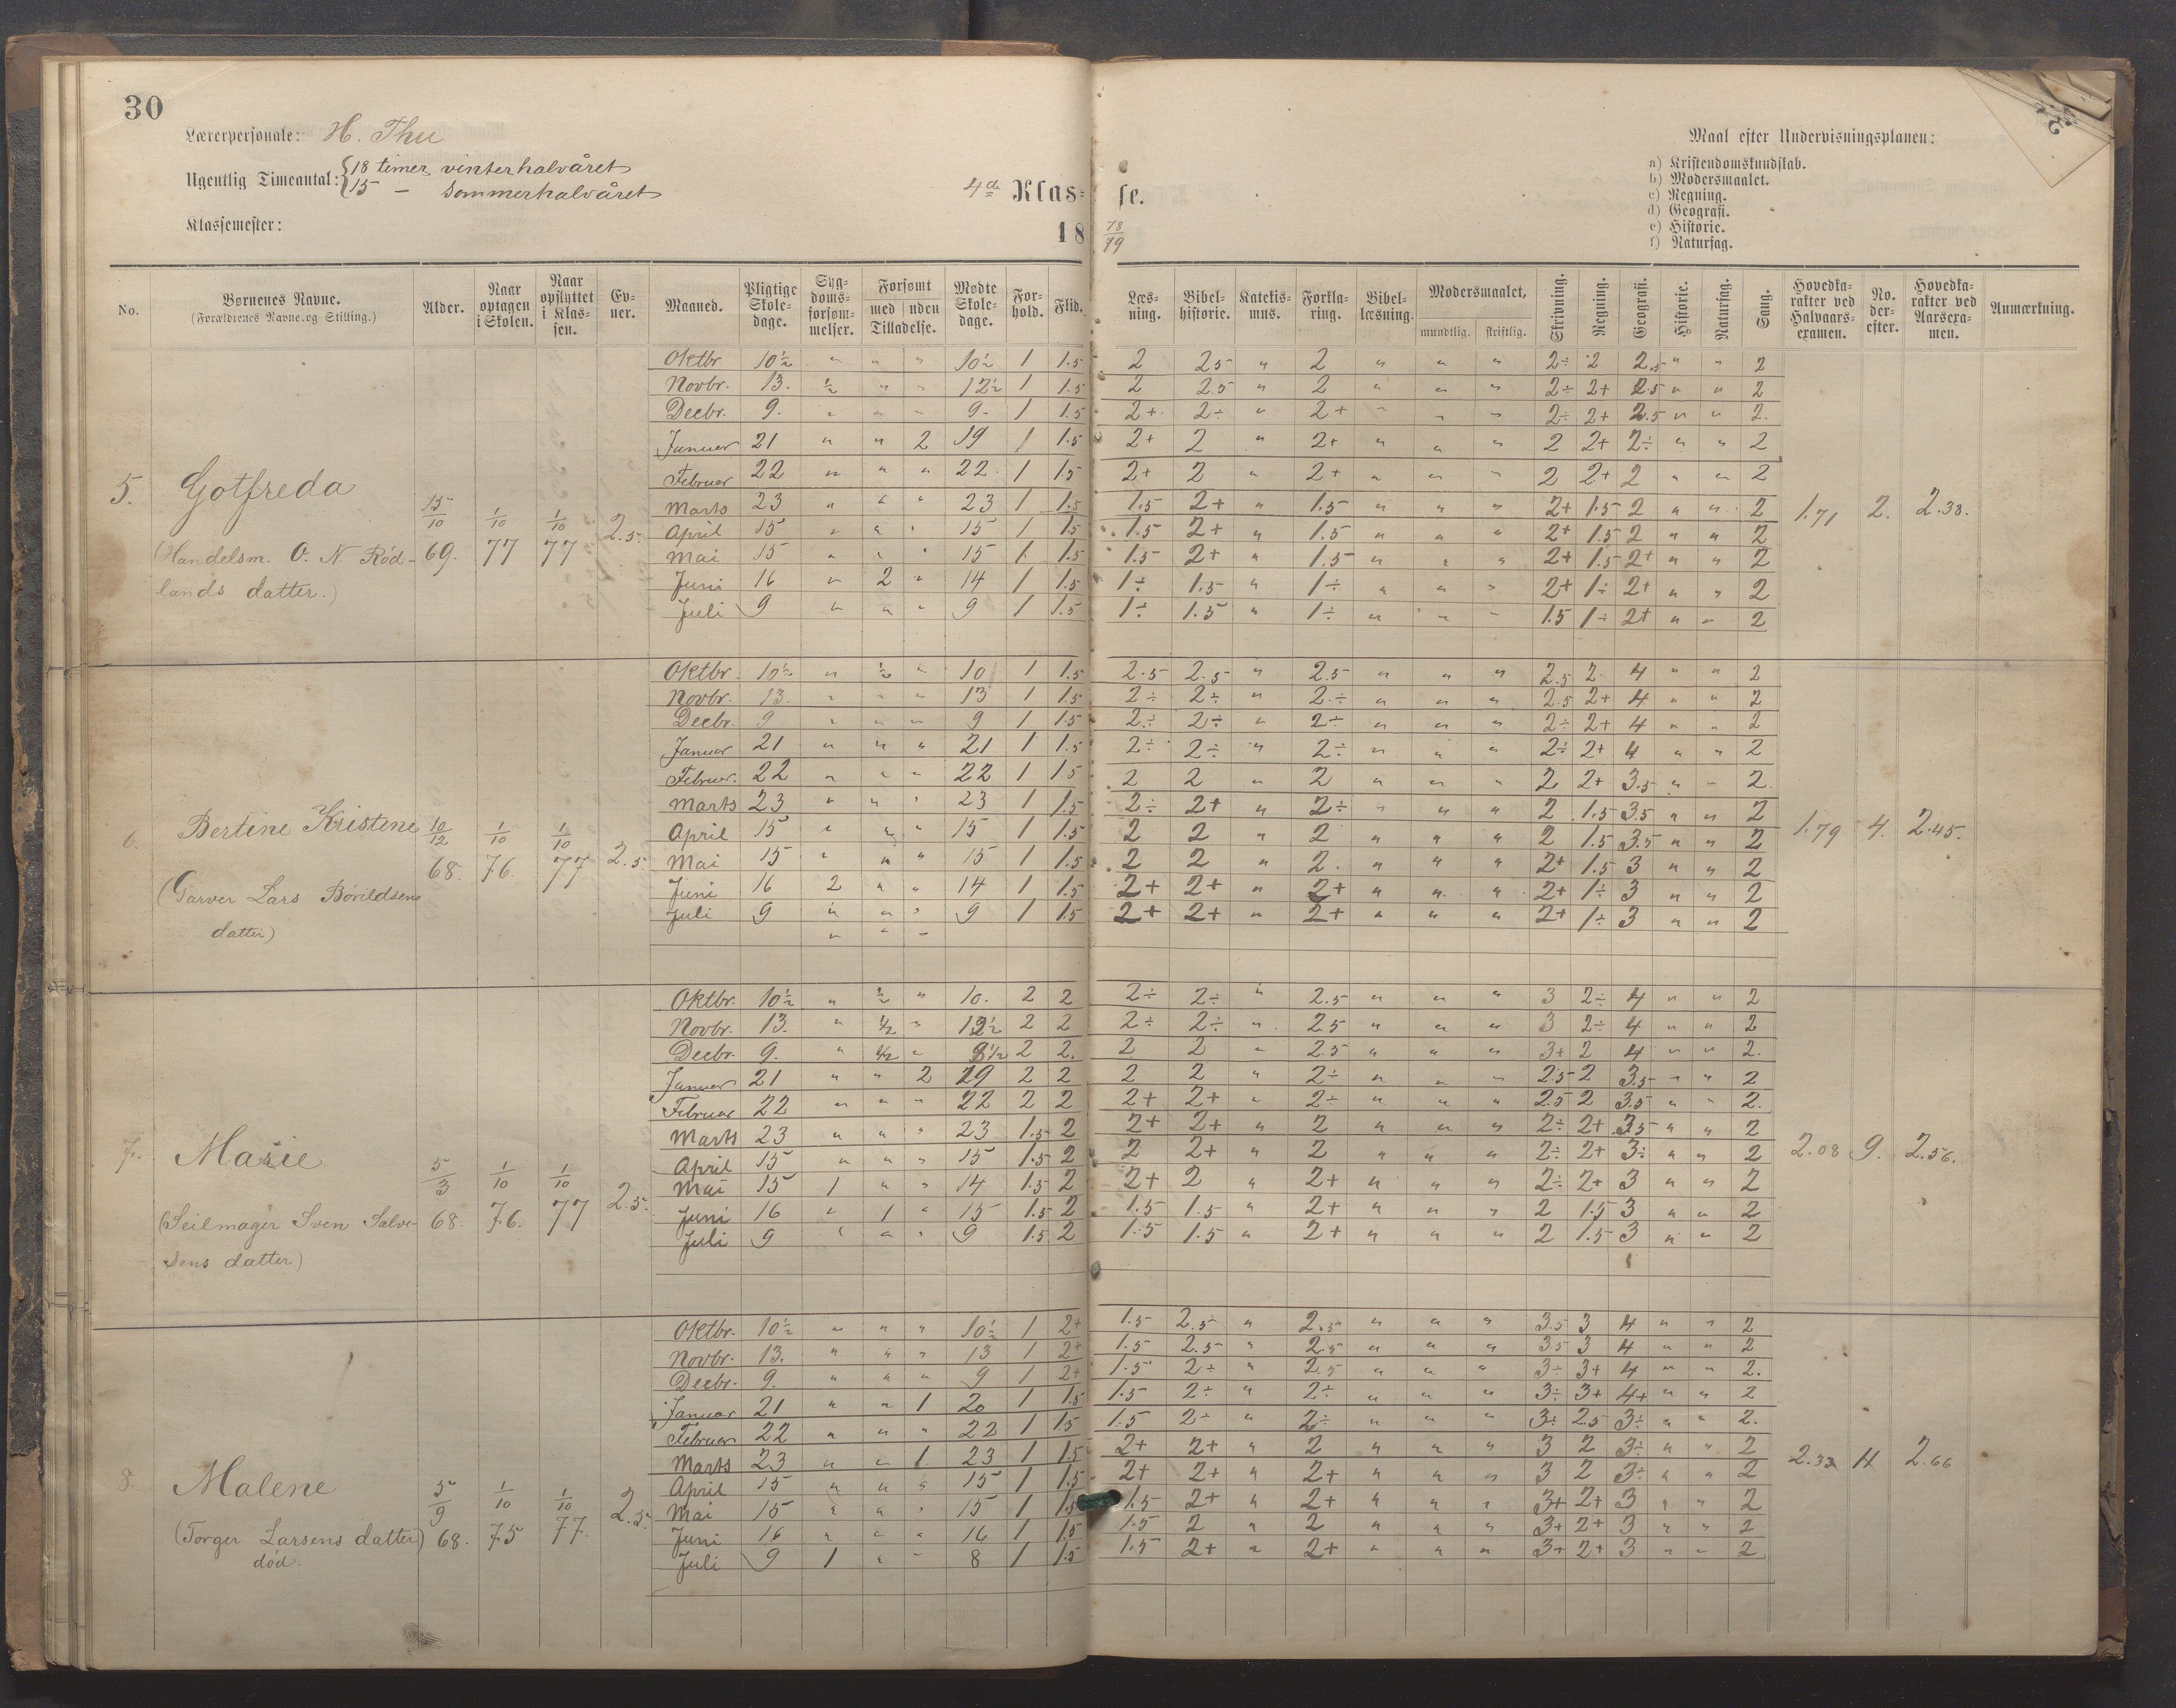 30
Lærerpersonale: H. Thu
Ugentlig Timeantal: {18 timer vinterhalvåret
15 — Sommerhalvåret
Klassemester:
4de Klasse.
18 78/79
Maal efter Undervisningsplanen:
a) Kristendomskundskab.
b) Modersmaalet.
c) Regning.
d) Geografi.
e) Historie.
f) Naturfag.
No. | Børnenes Navne. (Forældrenes Navne og Stilling.) | Alder. | Naar optagen i Skolen. | Naar opflyttet i Klassen. | Evner. | Maaned. | Pligtige Skoledage. | Sygdomsforsømmelser. | Forsømt med uden Tilladelse. | Mødte Skoledage. | Forhold. | Flid. | Læsning. | Bibelhistorie. | Katekismus. | Forklaring. | Bibellæsning. | Modersmaalet, mundtlig. skriftlig. | Skrivning. | Regning. | Geografi. | Historie. | Naturfag. | Sang. | Hovedkarakter ved Halvaarsexamen. | No. derefter. | Hovedkarakter ved Aarsexamen. | Anmærkning.
5. Gotfreda (Handelsm. O. N Rødlands datter.) 15/10 69. 1/10 77 1/10 77 2.5 1.71 2. 2.38.
Oktbr 10½ " " " 10½ 1 1.5 2 2.5 " 2 " " " 2÷ 2 2.5 " " 2
Novbr. 13. ½ " " 12½ 1 1.5 2 2.5 " 2 " " " 2÷ 2+ 2.5 " " 2
Decbr. 9. " " " 9. 1 1.5 2+ 2÷ " 2+ " " " 2÷ 2+ 2.5 " " 2.
Januar 21 " " 2 19 1 1.5 2+ 2 " 2+ " " " 2 2+ 2÷ " " 2
Februar 22 " " " 22 1 1.5 2+ 2 " 2+ " " " 2 2+ 2 " " 2
Marts 23 " " " 23 1 1.5 1.5 2+ " 1.5 " " " 2+ 1.5 2 " " 2
April 15 " " " 15 1 1.5 1.5 2+ " 1.5 " " " 2+ 1.5 2 " " 2
Mai 15 " " " 15 1 1.5 1.5 2+ " 1.5 " " " 2+ 1.5 2+ " " 2
Juni 16 " 2 " 14 1 1.5 1÷ 1.5 " 1÷ " " " 2+ 1÷ 2+ " " 2
Juli 9 " " " 9 1 1.5 1÷ 1.5 " 1÷ " " " 1.5 1÷ 2+ " " 2
6. Bertine Kristine (Garver Lars Børildsens datter) 10/12 68. 1/10 76. 1/10 77 2.5 1.79 4. 2.45.
Oktbr. 10½ " ½ " 10 1 1.5 2.5 2.5 " 2.5 " " " 2.5 2 4 " " 2
Novbr. 13. " " " 13 1 1.5 2÷ 2÷ " 2÷ " " " 2.5 2+ 4 " " 2
Decbr. 9 " " " 9 1 1.5 2÷ 2÷ " 2÷ " " " 2÷ 2+ 4 " " 2
Januar 21 " " " 21 1 1.5 2÷ 2÷ " 2÷ " " " 2÷ 2+ 4 " " 2
Februar. 22 " " " 22 1 1.5 2 2 " 2 " " " 2 2+ 3.5 " " 2.
Marts 23 " " " 23 1 1.5 2÷ 2+ " 2÷ " " " 2 1.5 3.5 " " 2
April 15 " " " 15 1 1.5 2 2 " 2 " " " 2 1.5 3.5 " " 2
Mai 15 " " " 15 1 1.5 2 2 " 2. " " " 2+ 1.5 3 " " 2
Juni 16 2 " " 14 1 1.5 2+ 2+ " 2+ " " " 2+ 1÷ 3 " " 2
Juli 9 " " " 9 1 1.5 2+ 2+ " 2+ " " " 2+ 1÷ 3 " " 2
" " "
7. Marie (Seilmager Sven Salvesens datter) 5/3 68. 1/10 76. 1/10 77 2.5. 2.08 9. 2.56.
Oktbr. 10½ " ½ " 10. 2 2 2÷ 2÷ " 2.5 " " " 3 2÷ 4 " " 2
Novbr. 13. " ½ " 12½ 2 2 2÷ 2÷ " 2.5 " " " 3 2÷ 4 " " 2
Decbr. 9. " ½ " 8½ 2 2. 2 2 " 2.5 " " " 3+ 2 4 " " 2.
Januar 21 " " 2 19 2 2 2 2 " 2÷ " " " 2.5 2 3.5 " " 2
Februar 22 " " " 22 2 2 2+ 2+ " 2÷ " " " 2.5 2 3.5 " " 2.
Marts 23 " " " 23 1.5 2 2+ 2+ " 2 " " " 2÷ 2+ 3.5 " " 2
April 15 " " " 15 1.5 2 2 2+ " 2 " " " 2÷ 2+ 3÷ " " 2
Mai 15 1 " " 14 1.5 2 2+ 2 " 2+ " " " 2÷ 2+ 3 " " 2
Juni 16 " 1 " 15 1.5 2 1.5 1.5 " 2+ " " " 2 1.5 3 " " 2
Juli 9 " " " 9 1.5 2 1.5 1.5 " 2+ " " " 2 1.5 3 " " 2
8. Malene (Torger Larsens datter) død. 5/9 68. 1/10 75 1/10 77. 2.5. 11 2.66
Oktbr. 10½ " " " 10½ 1 2+ 1.5 2.5 " 2.5 " " " 3.5 3 4 " " 2
Novbr. 13. " " " 13 1 2+ 1.5 2.5 " 2.5 " " " 3.5 3 4 " " 2
Decbr. 9. " " " 9 1 2+ 1.5 2÷ " 2.5 " " " 3÷ 3+ 4 " " 2.
Januar 21 " " 1 20 1 1.5 1.5 2÷ " 2÷ " " " 3÷ 3+ 4+ " " 2
Februar 22 " " " 22 1 1.5 1.5 2÷ " 2÷ " " " 3÷ 2.5 3÷ " " 2.
Marts 23 " " 1 23 1 1.5 2+ 2+ " 2 " " " 3 2 3÷ " " 2
April 15 " " " 15 1 1.5 2+ 2+ " 2+ " " " 3 2 3÷ " " 2
Mai 15 " " " 15 1 1.5 1.5 2+ " 2+ " " " 3+ 2+ 3 " " 2
Juni 16 " " " 16 1 1.5 1.5 2 " 2 " " " 3+ 2+ 3 " " 2
Juli 9 1 " " 8 1 1.5 1.5 2+ " 2+ " " " 3+ 2+ 3 " " 2